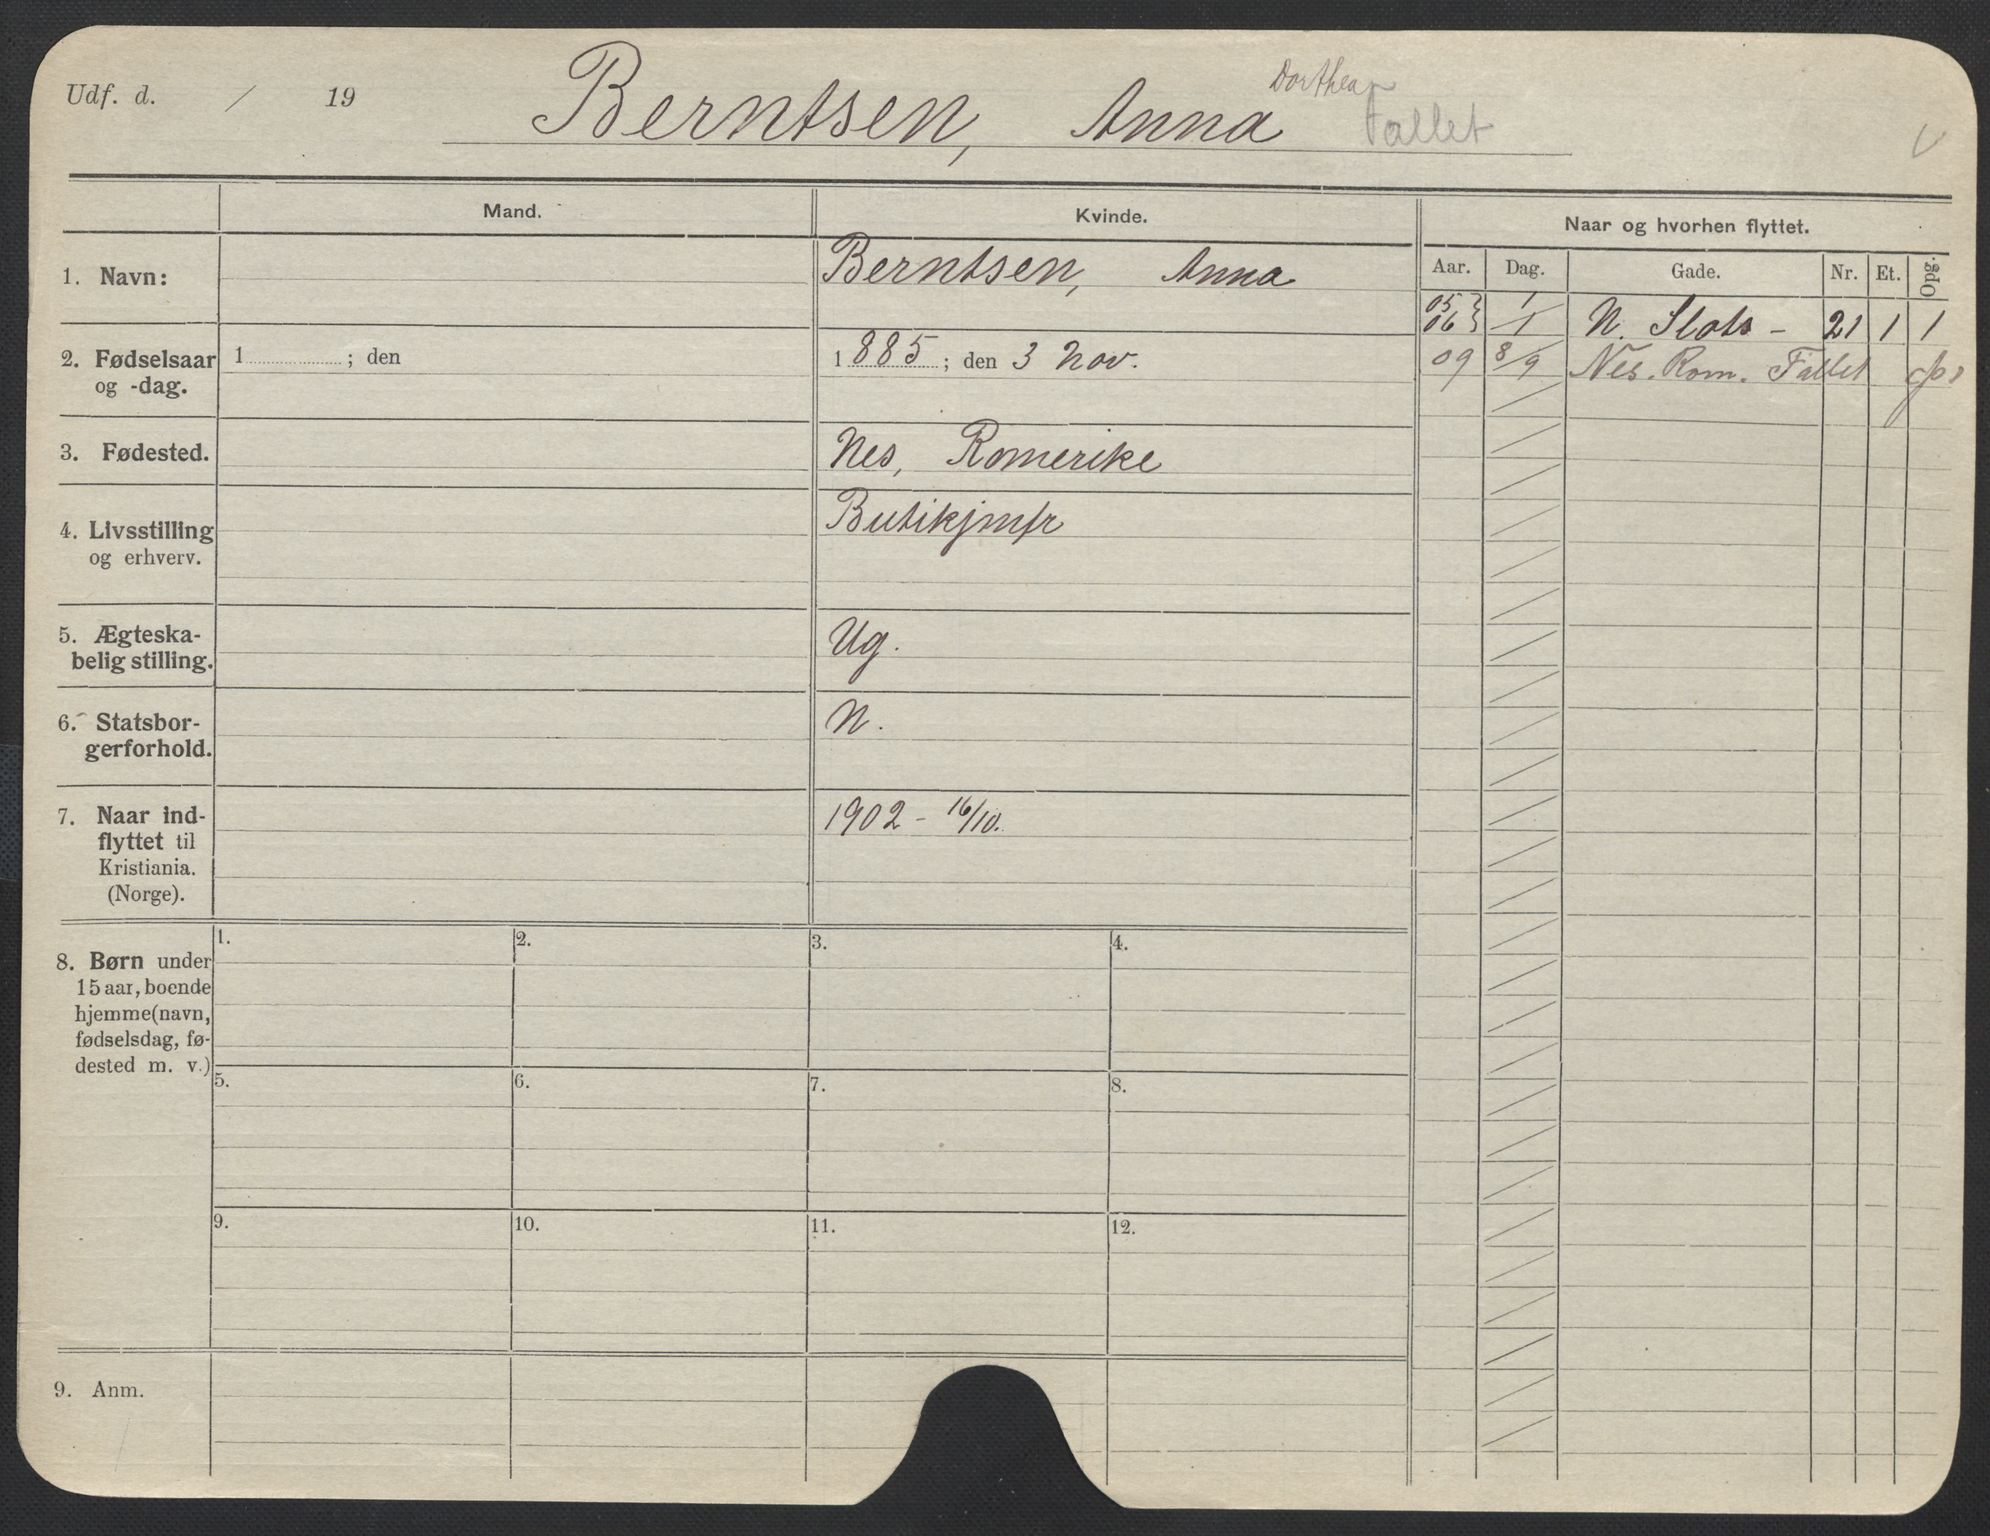 Udf. d. / 19
Berntsen, Anna Dorthea Fallet
Mand. Kvinde. Naar og hvorhen flyttet.
Aar. Dag. Gade. Nr. Et. Opg.
1. Navn: Berntsen, Anna
05 } 1/1 N. Slots - 21 1 1
06 }
2. Fødselsaar 1 ; den 1885 ; den 3 Nov.
og -dag.
09 8/9 Nes. Rom. Fallet
3. Fødested. Nes, Romerike
4. Livsstilling Butikjmfr
og erhverv.
5. Ægteska- Ug.
belig stilling.
6. Statsbor- N.
gerforhold.
7. Naar ind- 1902 - 16/10.
flyttet til
Kristiania.
(Norge).
8. Børn under 1. 2. 3. 4.
15 aar, boende
hjemme (navn,
fødselsdag, fø-
dested m. v.)
5. 6. 7. 8.
9. 10. 11. 12.
9. Anm.